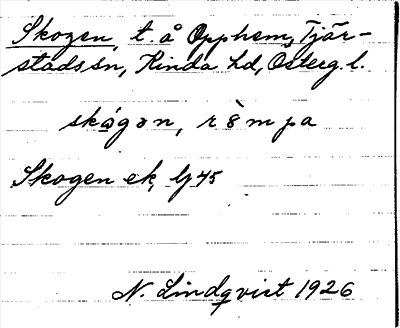 Skogen, t. å Opphem, Tjär-
stads sn, Kinda hd, Österg. l.
skọ̀gən, rèmpa
Skogen ek, lj 45
N. Lindqvist 1926